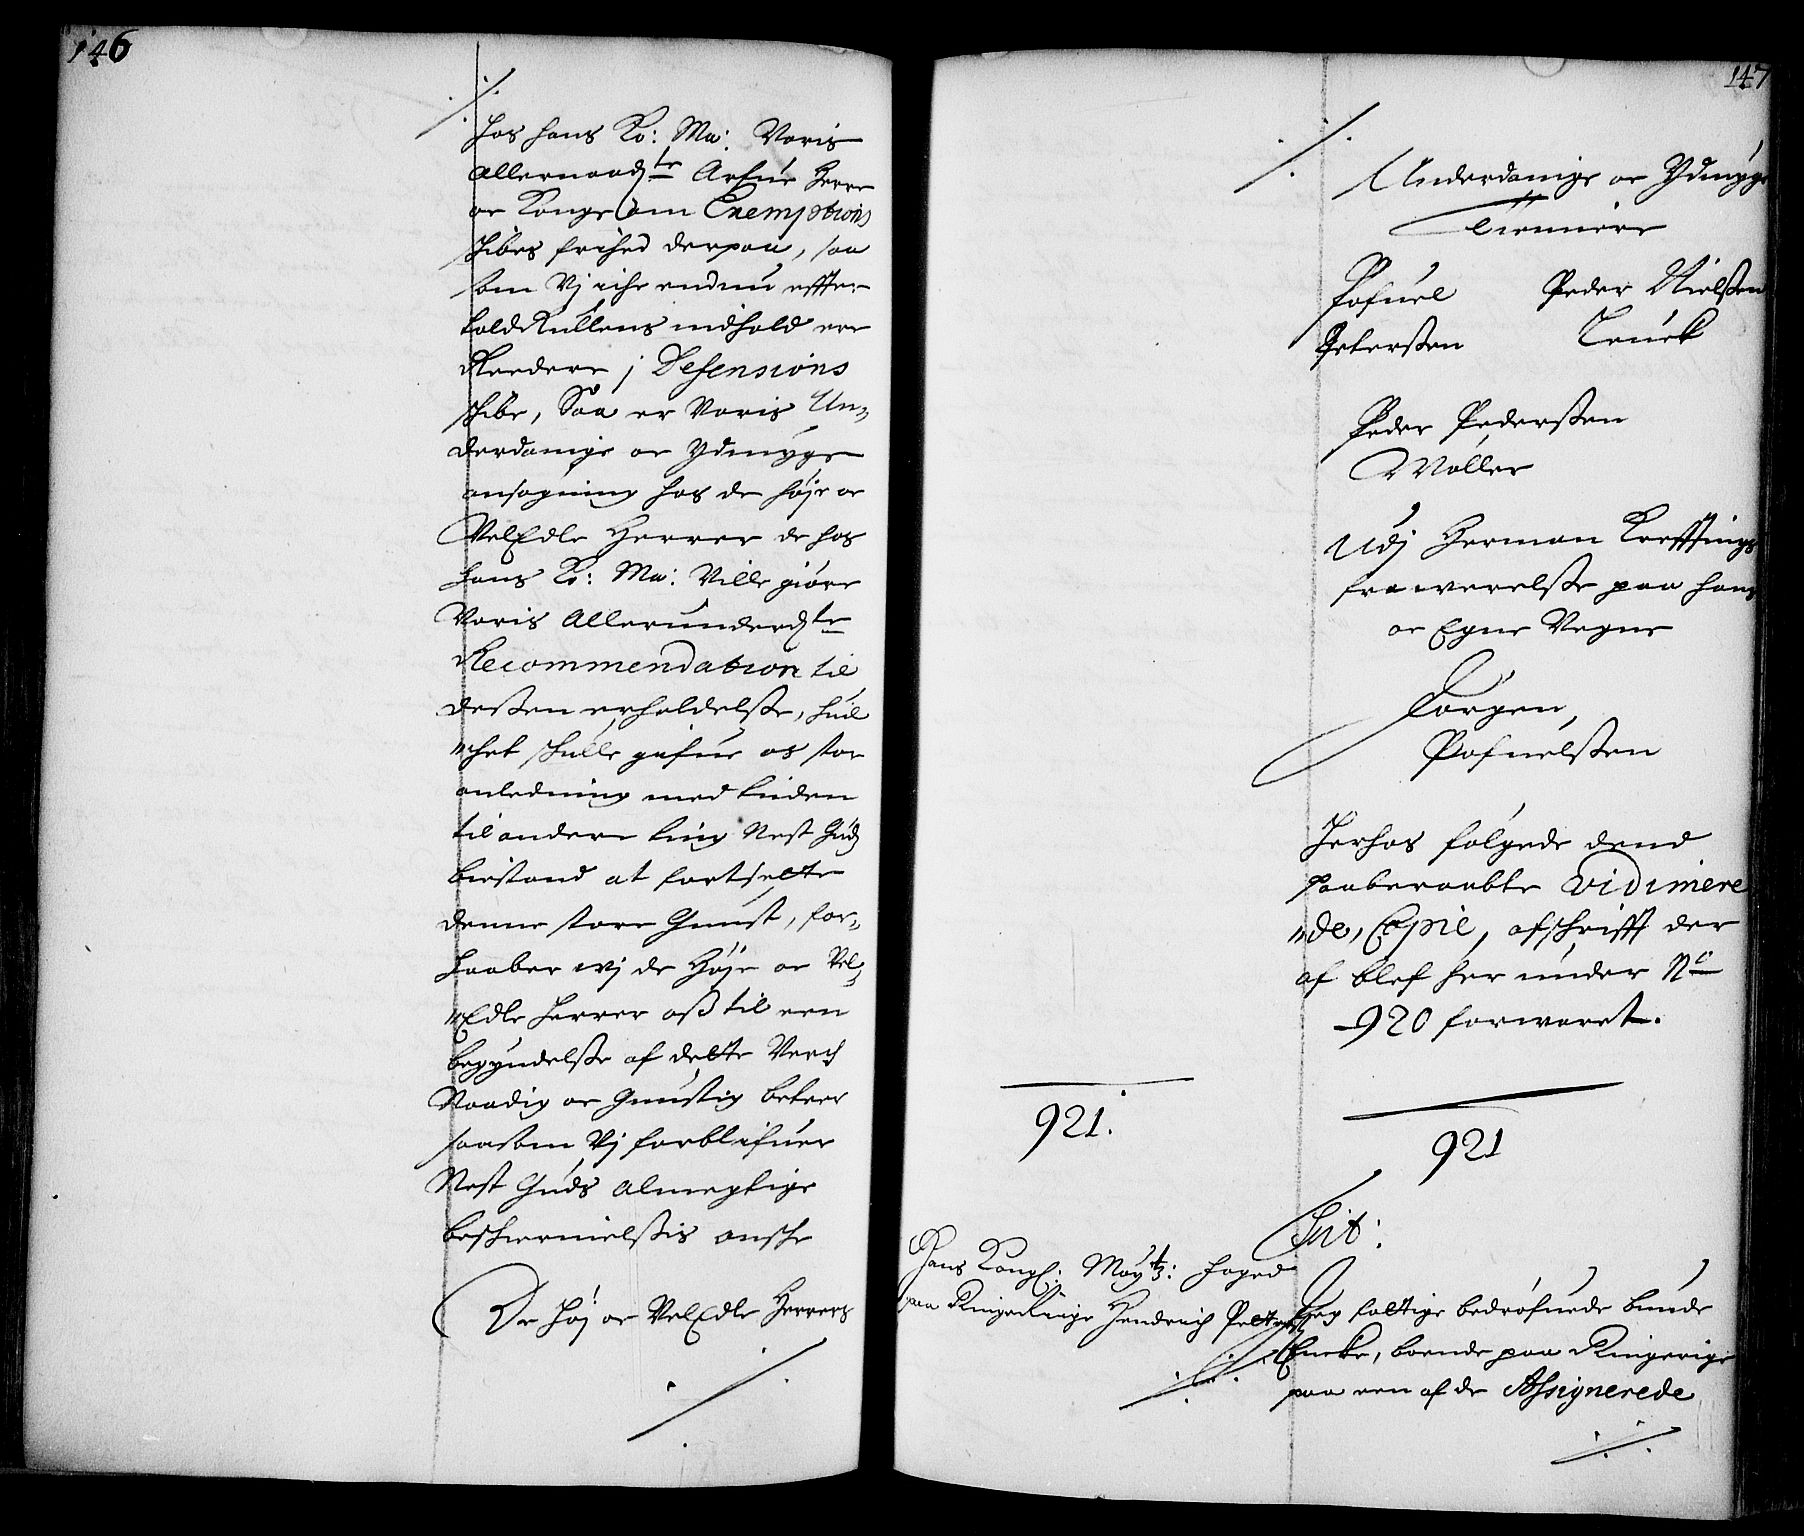 146
hos hans Ko: Ma: Voris
Allernaadste Arfue Herre
oc Konge om Exemptions
schibes frihed derpaa, saa
som Vj iche endnu effter
toldRullens indhold ere
Reedere j Defensions
schibe, Saa er Voris Un-
derdanige oc Ydmyge
ansøgning hos de høje oc
VelEdle Herrer de hos
hans Ko: Ma: Ville giøre
Voris Allerunderdste
Recommendation til
dessen erholdelsse, huil
chet schulle gifue os stor
anledning med tiiden
til andere ting Nest Guds
bistand at fortsette
denne store Gunst, for-
haaber wj de Høje oc Vel
Edle Herrer oss til een
begyndelsse af dette Verch
Naadig oc Gunstig beteer
saasom Vj forblifuer
Nest Guds Almegtige
beschiermelssis ønsche
De Høj oc VelEdle Herrers
147
Underdanige oc Ydmyge
Tienniere
Pofuel Peder Nielssen
Peterssen Leuck
Peder Pederssen
Møller
Udj Herman Kreffting
frawerelsse paa hans
oc Egne Vegne
Jørgen
Pofuelssen
Herhos følgede dend
paaberaabte Vidimere
de, Copie, afschrifft der
af blef her under No
920 forwaret.
921.
921
Hans Kongl: Maytz: foged
paa RingeRiige Hendrich
Tit:
Jeg fattige bedrøfuede bunde
Encke, boende paa Ringerige
paa een af de Assignerede